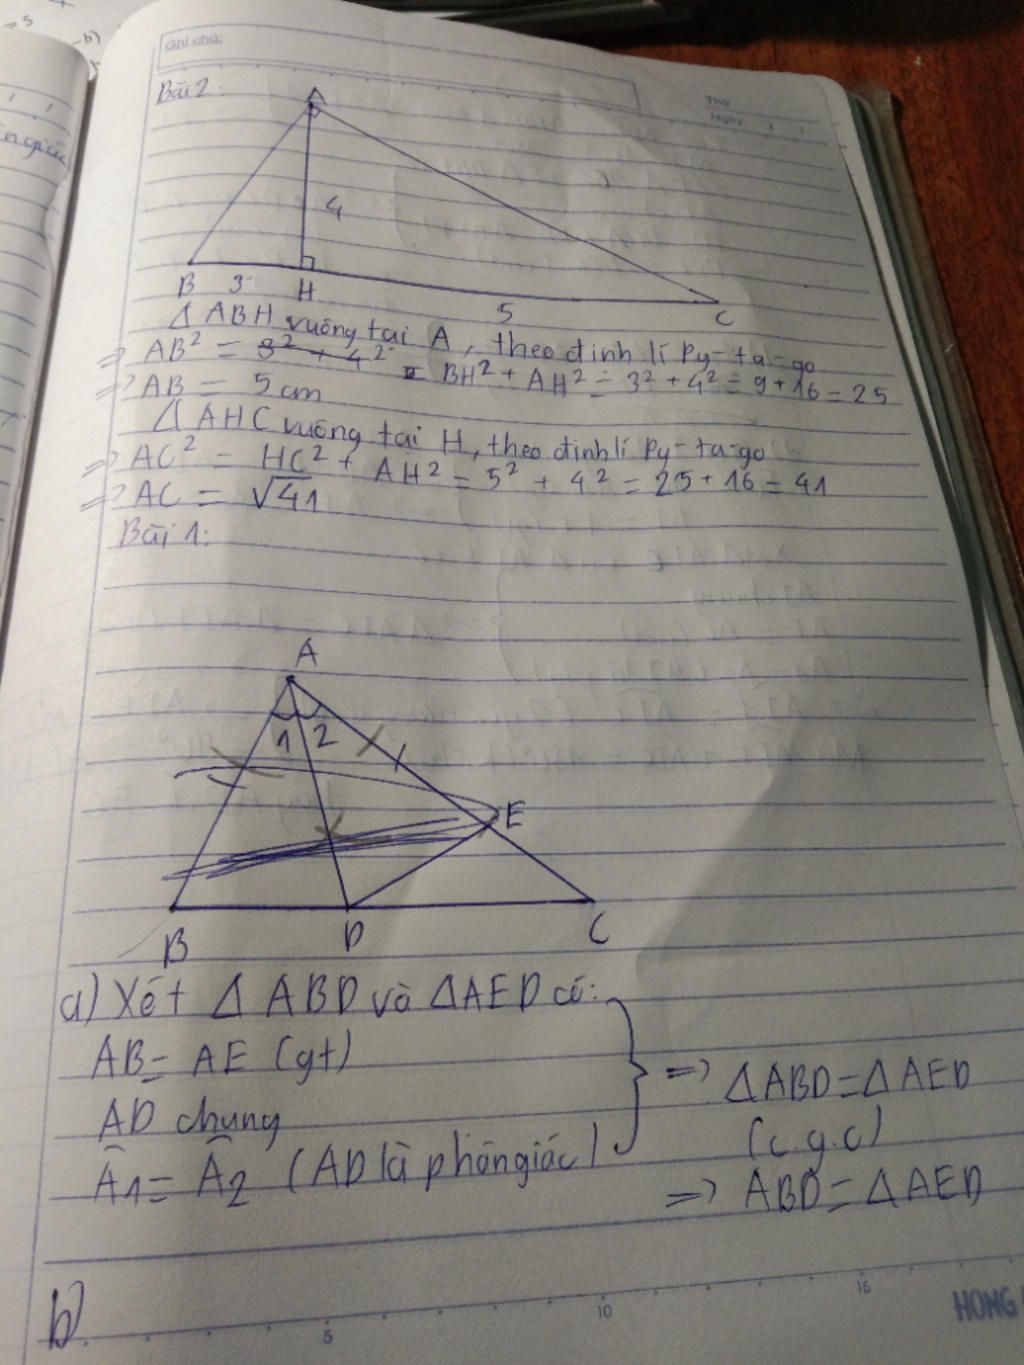 Ghi chú:
Thứ
Ngày
Bài 2:
A
4
B 3 H 5 C
Δ ABH vuông tại A, theo định lí Py-ta-go
=> AB² = 3² + 4² = BH² + AH² = 3² + 4² = 9 + 16 = 25
=> AB = 5 cm
Δ AHC vuông tại H, theo định lí Py-ta-go
=> AC² = HC² + AH² = 5² + 4² = 25 + 16 = 41
=> AC = √41
Bài 1:
A
1 2
E
B D C
a) Xét Δ ABD và ΔAED có:
AB = AE (gt)
AD chung
Â1 = Â2 (AD là phân giác)
=> ΔABD = ΔAED
(c.g.c)
=> ABD = ΔAED
b)
5 10 15
HONG